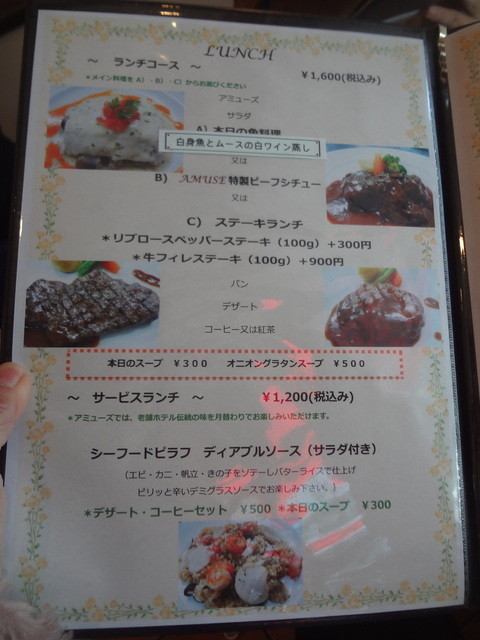 LUNCH
～ ランチコース ～ ￥1,600(税込み)
＊メイン料理を A）・B）・C）からお選びください
アミューズ
サラダ
A）本日の魚料理
白身魚とムースの白ワイン蒸し
又は
B） AMUSE 特製ビーフシチュー
又は
C） ステーキランチ
＊リブロースペッパーステーキ（100g）＋300円
＊牛フィレステーキ（100g）＋900円
パン
デザート
コーヒー又は紅茶
本日のスープ ￥３００ オニオングラタンスープ ￥５００
～ サービスランチ ～ ￥1,200(税込み)
＊アミューズでは、老舗ホテル伝統の味を月替わりでお楽しみいただけます。
シーフードピラフ ディアブルソース（サラダ付き）
（エビ・カニ・帆立・きの子をソテーしバターライスで仕上げ
ピリッと辛いデミグラスソースでお楽しみ下さい。）
＊デザート・コーヒーセット ￥500 ＊本日のスープ ￥300